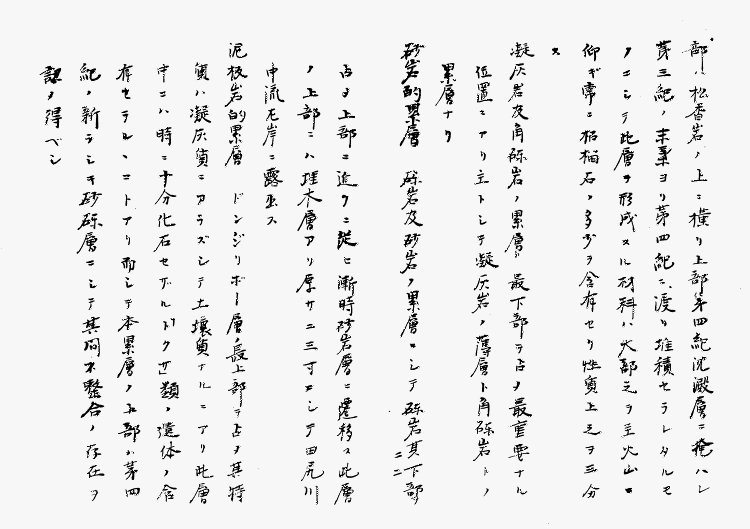 部ハ松香岩ノ上ニ横リ上部第四紀沈澱層ニ掩ハレ
第三紀ノ末葉ヨリ第四紀ニ渡リ堆積セラレタルモ
ノニシテ此層ヲ形成スル材料ハ大部之ヲ主火山ニ
仰ギ常ニ柘榴石ノ多少ヲ含有セリ性質上之ヲ三分
ス
凝灰岩及角礫岩ノ累層 最下部ヲ占メ最重要ナル
位置ニアリ主トシテ凝灰岩ノ薄層ト角礫岩トノ
累層ナリ
砂岩的累層 礫岩及砂岩ノ累層ニシテ礫岩其下部ニ
占メ上部ニ近クニ従ヒ漸時砂岩層ニ遷移ス此層
ノ上部ニハ埋木層アリ厚サ二三寸ニシテ田尻川
中流左岸ニ露出ス
泥板岩的累層 ドンジリボー層ノ最上部ヲ占メ其特
質ハ凝灰質ニアラズシテ土壌質ナルニアリ此層
中ニハ時ニ十分化石セザルドクサ類ノ遺体ノ含
有セラルヽコトアリ而シテ本累層ノ上部ハ第四
紀ノ新ラシキ砂礫層ニシテ其間不整合ノ存在ヲ
認メ得ベシ